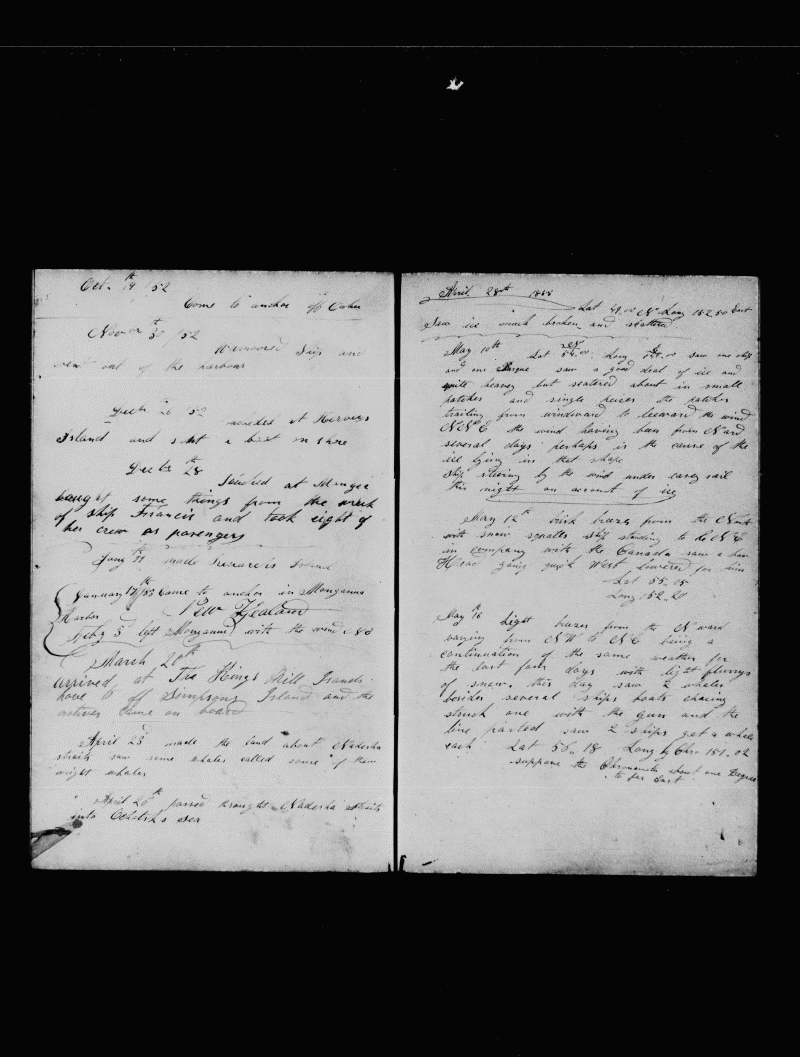 Oct. 19th /52
Come to anchor off Oahu
Novem 30th /52
Unmoored Ship and
went out of the harbour
Decbr 20 52
at Herveys
Island and sent a boat on shore
Decbr 28th
touched at Mangea
bought some things from the wreck
of ship Francis and took eight of
her crew as pasengers
Jany 11th made Island
January 17th /53 Came to anchor in Monganua
Harbor New Zealand
Feby 5 left Monganua with the wind
March 20th
arrived at The Kings Mill Islands
hove to off Simpsons Island and the
natives came on board
April 23d made the land about Nadesha
straits saw some whales called some of them
wright whales
April 26th passed through Nadesha straits
into Ochotsks Sea
April 28th
Lat 49.00 N Long 152.50 East
Saw ice much broken and scatered
May 10th Lat 54.00 Long saw one ship
and one Barque saw a good deal of ice and
quite heavey but scatered about in small
patches and single pieces the patches
trailing from windward to leeward the wind
NNE the wind having been from N ard
several days perhaps is the cause of the
ice lying in that shape
Ship steering by the wind under easey sail
this night on account of ice
May 12th brisk breeze from the
with snow squalls ship standing to
in company with the Canada saw a
going quick West lowered for him
Lat 55.05
Long 152.20
May 16th Light breeze from the N ward
varying from NW to NE being a
continuation of the same weather for
the last four days with light flurrys
of snow. this day saw 2 whales
besides several ships boats chasing
struck one with the gun and the
line parted saw 2 ships get a whale
each Lat 56.18 Long by Chr 151.02
suppose the Chronometer about one Degree
to far East